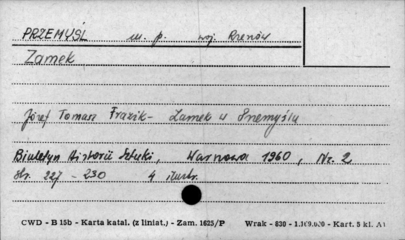 PRZEMYŚL m. p. woj. Rzeszów
Zamek
Józef Tomasz Frazik - Zamek w Przemyślu
Biuletyn Historii Sztuki, Warszawa 1960, Nr. 2
str. 227 - 230 4 ilustr.
CWD - B 15b - Karta katal. (z liniat.) - Zam. 1625/P Wrak - 830 - 1.109.000 - Kart. 5 kl. A1